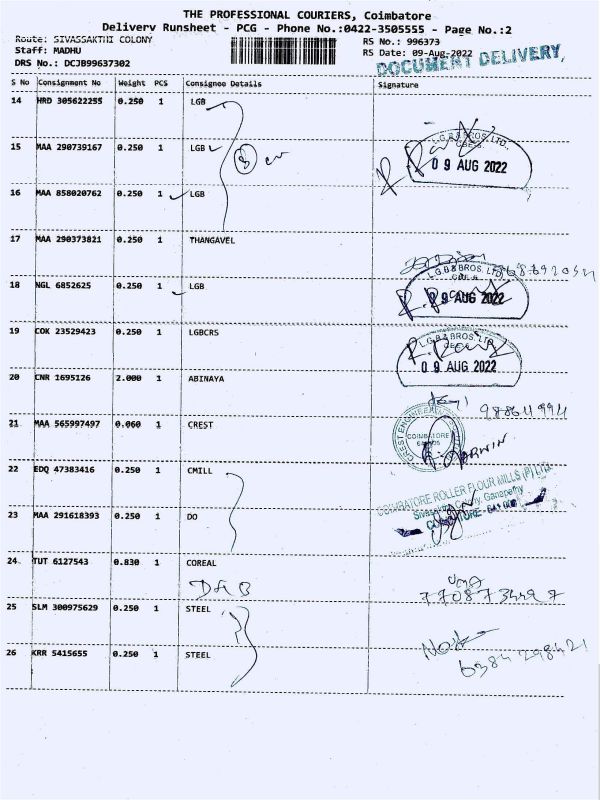 THE PROFESSIONAL COURIERS, Coimbatore
Delivery Runsheet - PCG - Phone No.:0422-3505555 - Page No.:2
Route: SIVASSAKTHI COLONY
RS No.: 996373
Staff: MADHU
RS Date: 09-Aug-2022
DRS No.: DCJB99637302
DOCUMENT DELIVERY,
S No Consignment No Weight PCS Consignee Details Signature
14 HRD 305622255 0.250 1 LGB
15 MAA 290739167 0.250 1 LGB
L.G.B & BROS. LTD.,
09 AUG 2022
16 MAA 858020762 0.250 1 LGB
17 MAA 290373821 0.250 1 THANGAVEL
18 NGL 6852625 0.250 1 LGB
L.G.B & BROS. LTD.,
09 AUG 2022
19 COK 23529423 0.250 1 LGBCRS
L.G.B & BROS. LTD.,
09 AUG 2022
20 CNR 1695126 2.000 1 ABINAYA
21 MAA 565997497 0.060 1 CREST
COIMBATORE
22 EDQ 47383416 0.250 1 CMILL
COIMBATORE ROLLER FLOUR MILLS (P) LTD
23 MAA 291618393 0.250 1 DO
24 TUT 6127543 0.830 1 COREAL
25 SLM 300975629 0.250 1 STEEL
26 KRR 5415655 0.250 1 STEEL